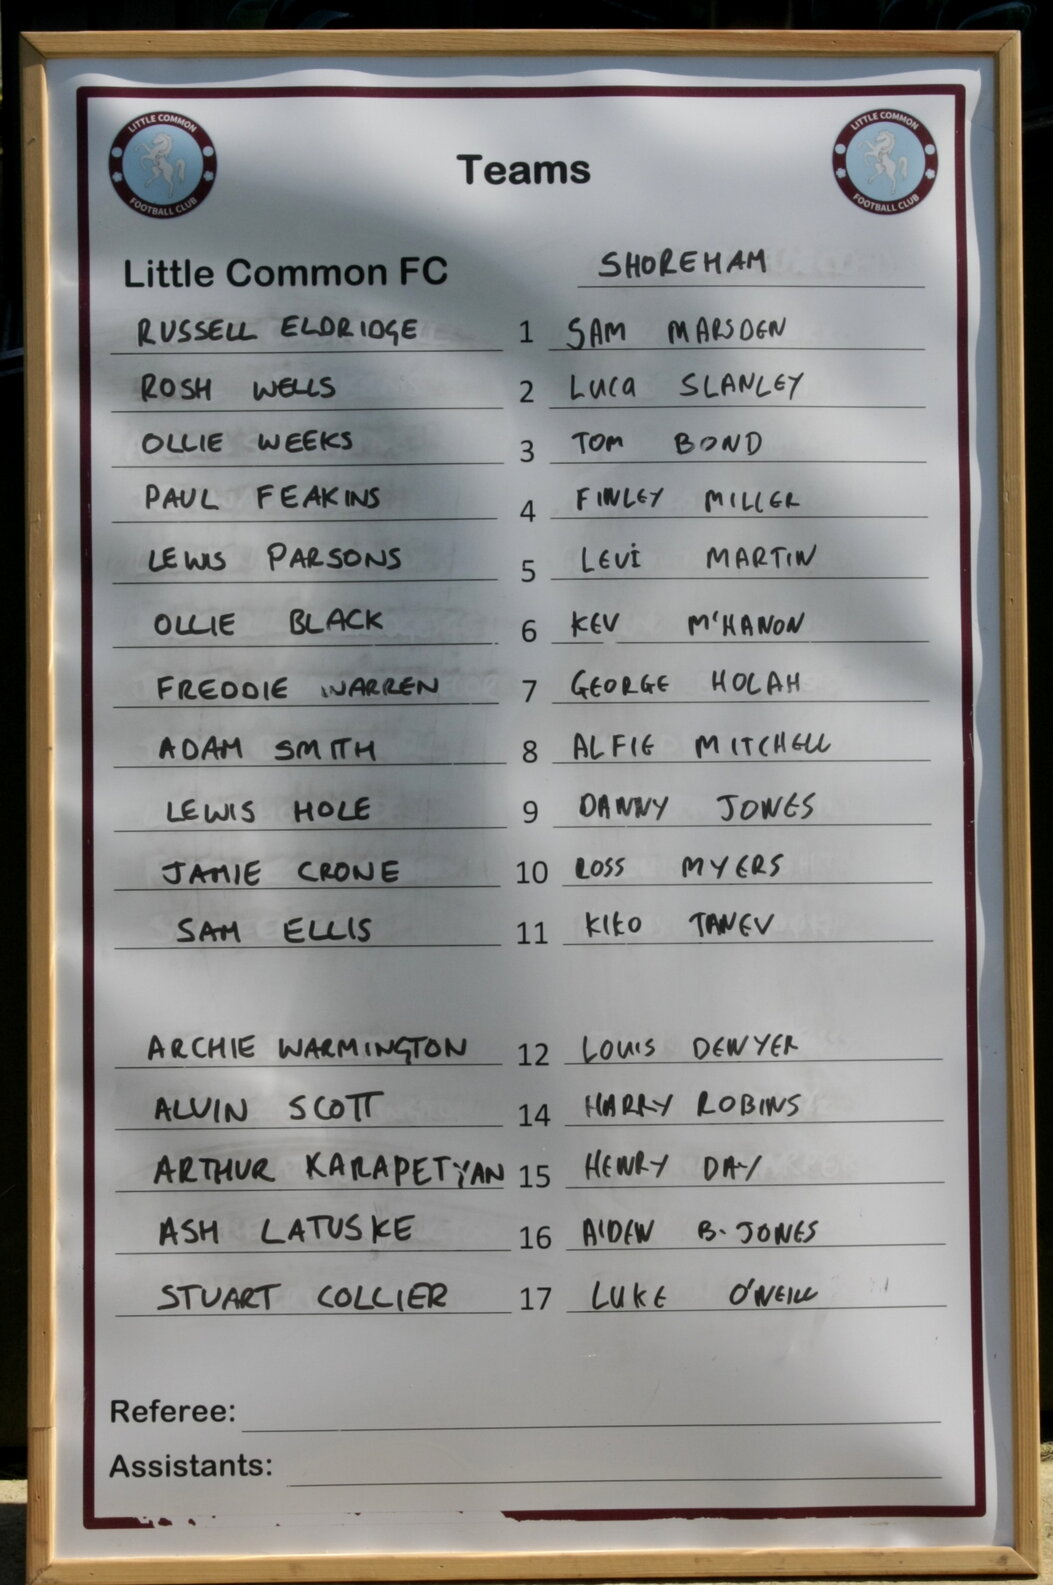 LITTLE COMMON FOOTBALL CLUB
Teams
LITTLE COMMON FOOTBALL CLUB
Little Common FC SHOREHAM
RUSSELL ELDRIDGE 1 SAM MARSDEN
ROSH WELLS 2 LUCA SLANLEY
OLLIE WEEKS 3 TOM BOND
PAUL FEAKINS 4 FINLEY MILLER
LEWIS PARSONS 5 LEVI MARTIN
OLLIE BLACK 6 KEV M'HANON
FREDDIE WARREN 7 GEORGE HOLAH
ADAM SMITH 8 ALFIE MITCHELL
LEWIS HOLE 9 DANNY JONES
JAMIE CRONE 10 ROSS MYERS
SAM ELLIS 11 KIKO TANEV
ARCHIE WARMINGTON 12 LOUIS DEWYER
ALVIN SCOTT 14 HARRY ROBINS
ARTHUR KARAPETYAN 15 HENRY DAY
ASH LATUSKE 16 AIDEN B-JONES
STUART COLLIER 17 LUKE O'NEILL
Referee:
Assistants: